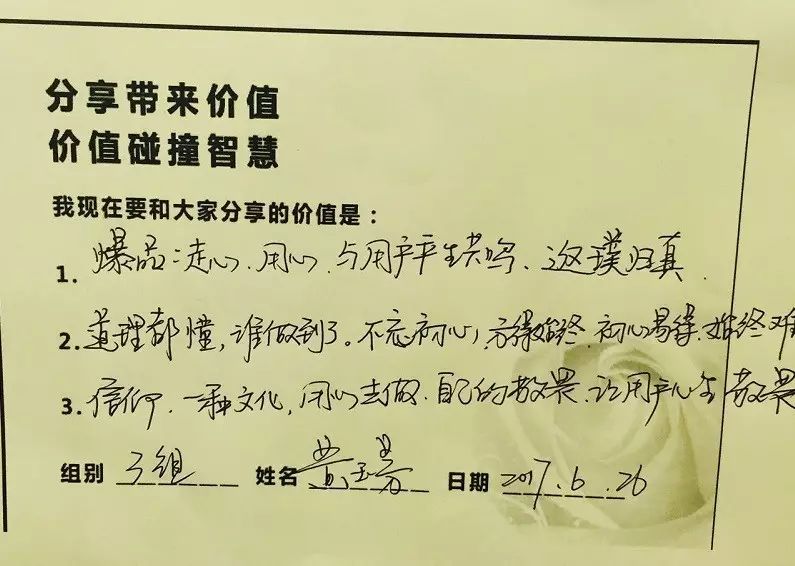 分享带来价值
价值碰撞智慧
我现在要和大家分享的价值是：
1. 爆品：走心、用心、与用户产生共鸣、返璞归真
2. 道理都懂，谁做到了。不忘初心，方得始终，初心易得，始终难
3. 信仰、一种文化，用心去做、自己的敬畏、让用户心生敬畏
组别 3组 姓名 黄 日期 2017.6.26